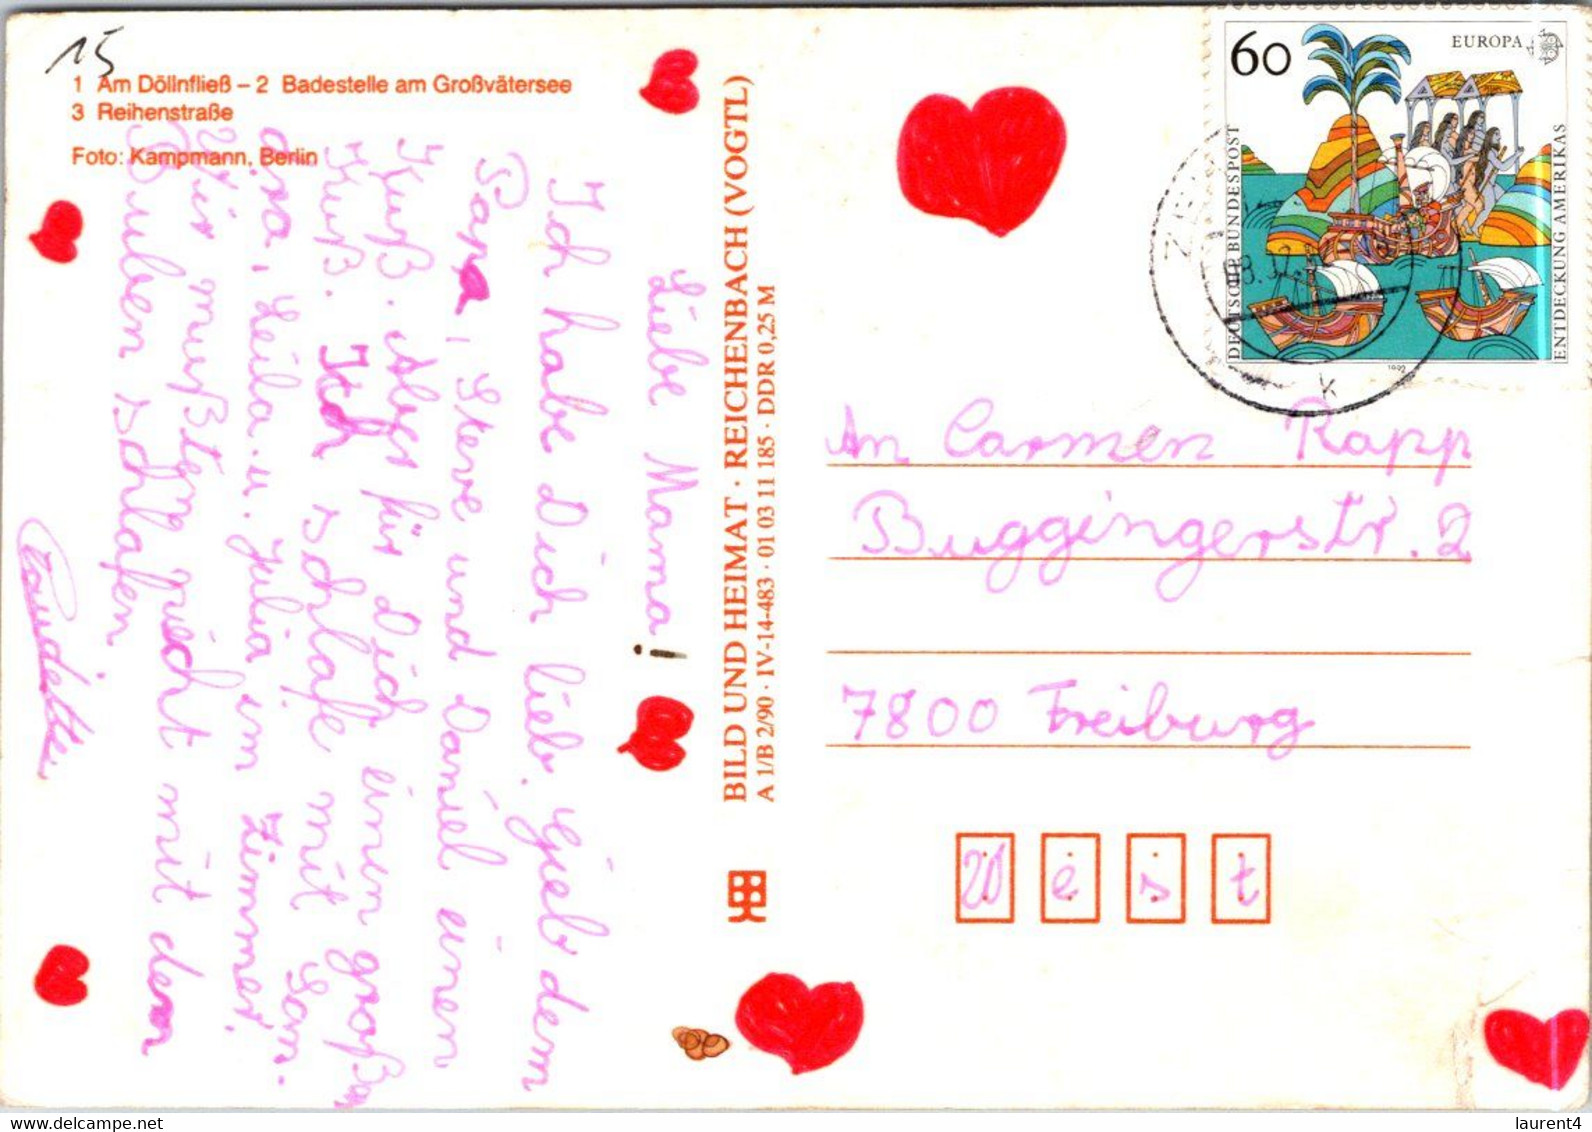 15
1 Am Döllnfließ – 2 Badestelle am Großvätersee
3 Reihenstraße
Foto: Kampmann, Berlin
Liebe Mama!
Ich habe Dich lieb. Gieb dem
Papa, Steve und Daniel einen
Kuß. Aber für Dich einen großen
Kuß. Ich schlafe mit Sam-
ara, Leila u. Julia im Zimmer.
Wir mußten nicht mit den
Buben schlafen
Claudette
BILD UND HEIMAT · REICHENBACH (VOGTL)
A 1/B 2/90 · IV-14-483 · 01 03 11 185 · DDR 0,25 M
60
EUROPA
DEUTSCHE BUNDESPOST
ENTDECKUNG AMERIKAS
1992
k
An Carmen Rapp
Buggingerstr. 2
7800 Freiburg
West
www.delcampe.net
laurent4